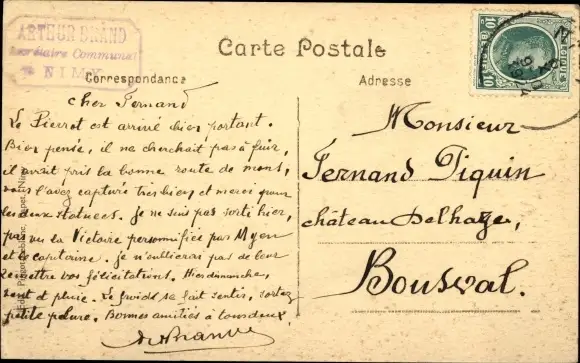 ARTHUR BRAND
Secrétaire Communal
NIMY
Carte Postale
Correspondance
Adresse
10
BELGIQUE
10
Cher Fernand
Le Pierrot est arrivé bien portant.
Bien pensé, il ne cherchait pas à fuir,
il avait pris la bonne route de mons,
vous l'avez capturé très bien et merci pour
les deux statuees. Je ne suis pas sorti hier,
pas vu la Victoire personnifiée par Myen
et le capitaine. Je n'oublierai pas de leur
remettre vos félicitations. Hier dimanche,
vent et pluie. Le froid se fait sentir, sortez
petite pelure. Bonnes amitiés à tous deux.
Monsieur
Fernand Piquin
château Delhaze,
Bousval.